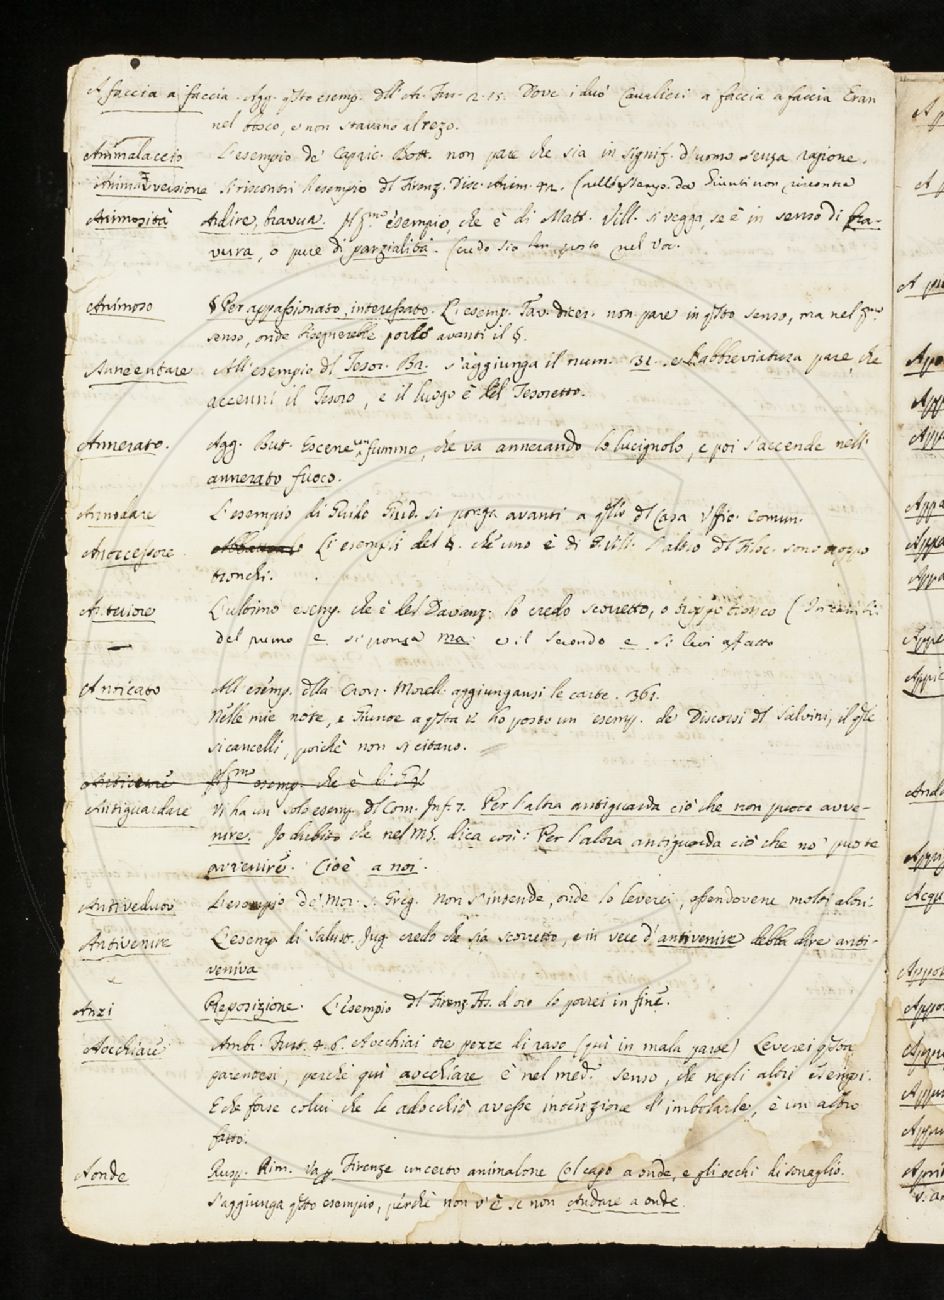 A faccia a faccia. Agg. q.sto esemp. dell'Ar. Fur. 2. 15. Dove i duo Cavalieri a faccia a faccia Eran
nel bosco, e non stavano al rezo.
Animalaccio L'esempio de' Capric. Bott. non pare che sia in signif. d'uomo senza ragione.
Animavversione Si riscontri l'esempio del Firenz. Disc. Anim. 42. (nell'esemp. da Giunti non riscontra
Animosità Ardire, bravura. Il p.mo esempio, che è di Matt. Vill. si vegga, se è in senso di bra-
vura, o pure di parzialità. Credo sia ben posto nel Voc.
Animoso § Per appassionato, interessato. L'esemp. Tav. dicer. non pare in q.sto senso, ma nel p.mo
senso, onde bisognerebbe porlo avanti il §.
All'esempio del Tesor. Br. s'aggiunga il num. 31. e l'abbreviatura pare, che
accenni il Tesoro, e il luogo è del Tesoretto.
Annerato. Agg. But. Escene un fummo, che va annerando lo lucignolo, e poi s'accende nell'
annerato fuoco.
Annodare L'esempio di Guido Guid. si ponga avanti a q.llo del Casa Uffic. Comun.
Antecessore. Gli esempli del §. che uno è di G. Vill. l'altro del Filoc. sono troppo
tronchi.
Anteriore L'ultimo esemp. che è del Davanz. lo credo scorretto, o troppo tronco
del primo e si ponga ma e il secondo e si levi affatto
Anticato All'esemp. della Cron. Morell. aggiungansi le carte. 361.
Nelle mie note, e Giunte a q.sta V. ho posto un esemp. de' Discorsi del Salvini, il q.le
si cancelli, poichè non si citano.
p.mo esemp. che è di
Antiguardare Vi ha un solo esemp. del Com. Inf. 7. Per l'altra antiguarda ciò che non puote avve-
nire. Io dubito che nel MS. dica così: Per l'altra antiguarda ciò che no' puote
avvenire. Cioè a noi.
Antiveduto L'esempio de' Mor. S. Greg. non s'intende, onde lo leverei, essendovene molti altri.
Antivenire L'esemp. di Salust. Jug. credo che sia scorretto, e in vece d'antivenire debba dire anti-
veniva
Anzi Preposizione. L'esempio del Firenz. As. d'oro lo porrei in fine.
Aocchiare Ambr. Furt. 4. 6. Aocchiai tre pezze di raso (qui in mala parte) Leverei q.sta
parentesi, perchè qui aocchiare è nel med.o senso, che negli altri esempi.
E che forse colui che le adocchiò avesse intenzione d'imbolarle, è un altro
fatto.
Aonde Rusp. Rim. Va p. Firenze un certo animalone Col capo a onde, e gli occhi di sonaglio.
s'aggiunga q.sto esempio, perchè non v'è se non Andare a onde.